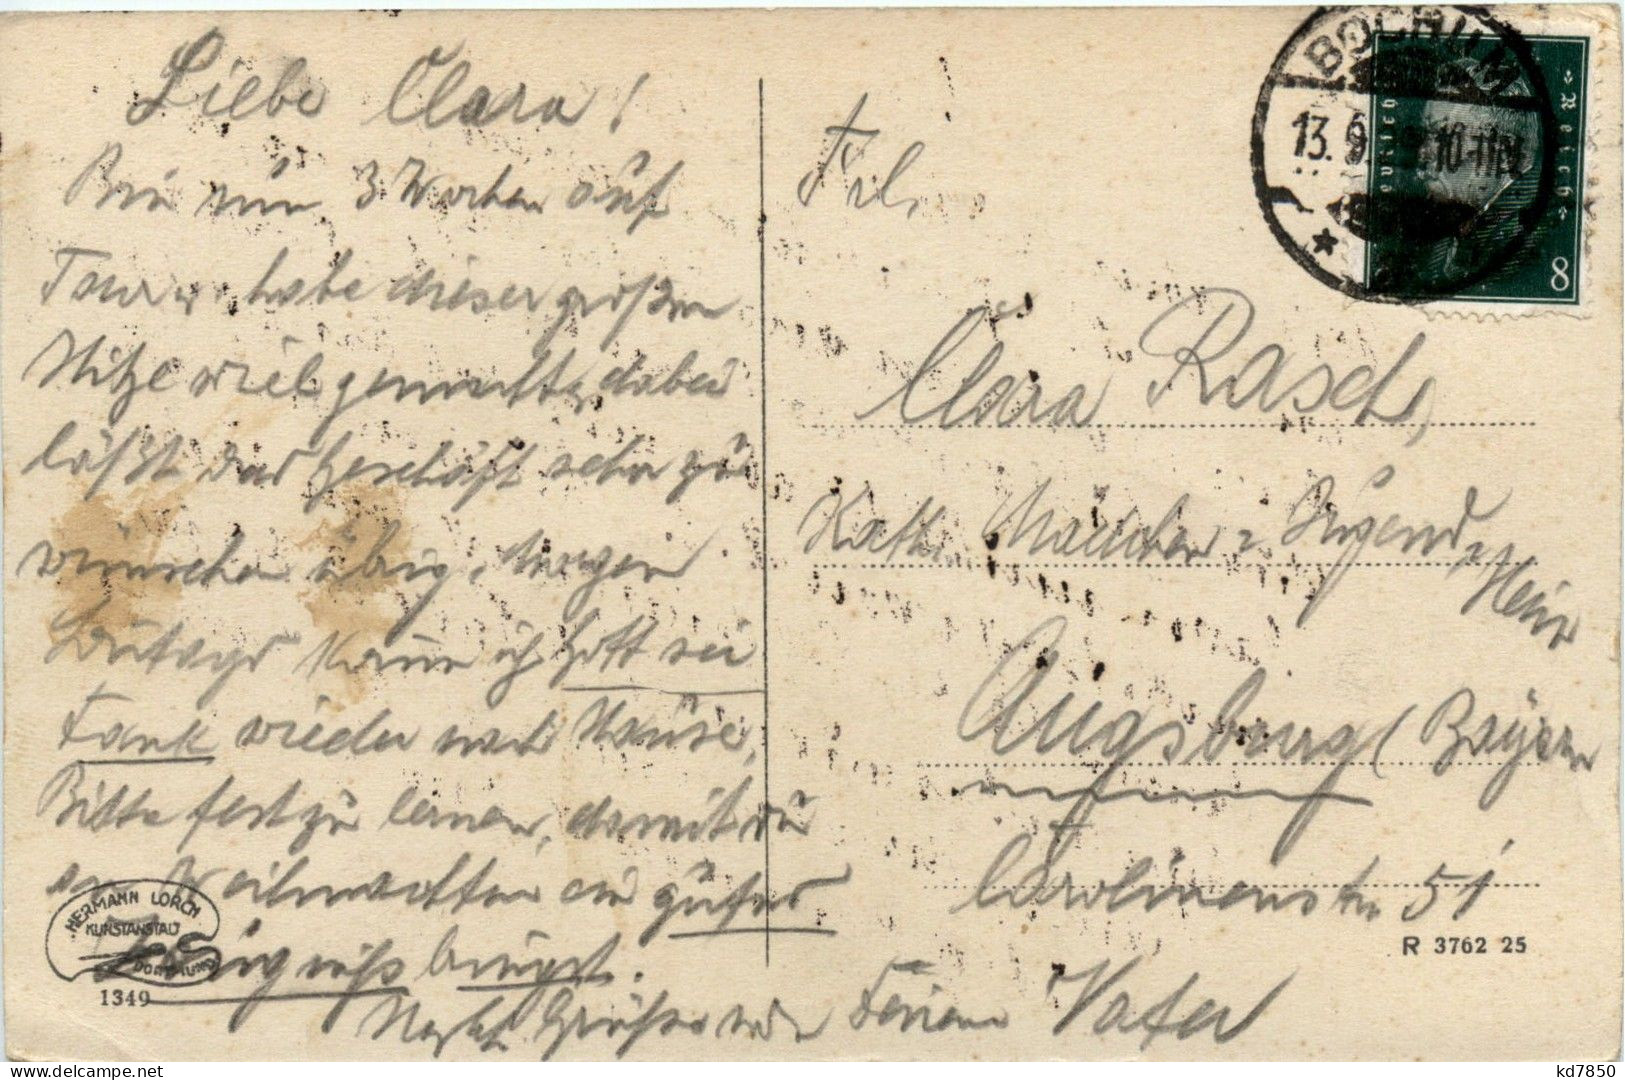 Liebe Clara!
Bin nun 3 Wochen auf
Tour u. habe dieser großen
Hitze viel gemacht, dabei
läßt das Geschäft sehr zu
wünschen übrig. Morgen
kann ich Gott sei
Dank wieder nach Hause.
Bitte fest zu lernen, damit du
an Weihnachten ein gutes
Zeugniß bringst.
Herzl. Grüße von Deinem Vater
HERMANN LORCH
KUNSTANSTALT
DORTMUND
1349
BOCHUM
13.9.
10-11
Deutsches Reich
8
Frl.
Clara Rasch,
Kath. Mädchen- Jugend-
Heim
Augsburg (Bayern
Carolinenstr. 51
R 3762 25
kd7850